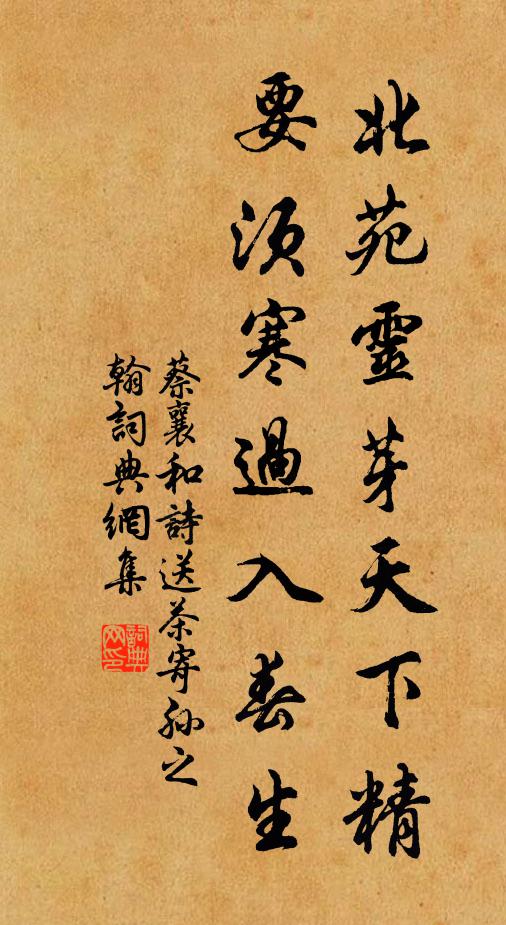 北苑靈芽天下精
要須寒過入春生
蔡襄和詩送茶寄孫之
翰詞典網集
詞典
网印